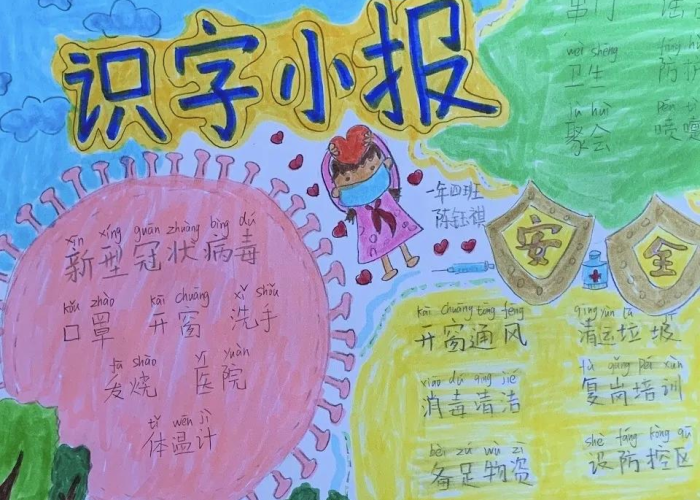 识字小报
xīn xíng guān zhuàng bìng dú
新型冠状病毒
kǒu zhào kāi chuāng xǐ shǒu
口罩 开窗 洗手
fā shāo yī yuàn
发烧 医院
tǐ wēn jì
体温计
一年四班
陈钰祺
wèi shēng
卫生
jù huì
聚会
安全
kāi chuāng tōng fēng
开窗通风
qīng yùn lā
清运垃圾
xiāo dú qīng jié
消毒清洁
fù gǎng péi xùn
复岗培训
bèi zú wù zī
备足物资
shè fáng kòng qū
设防控区